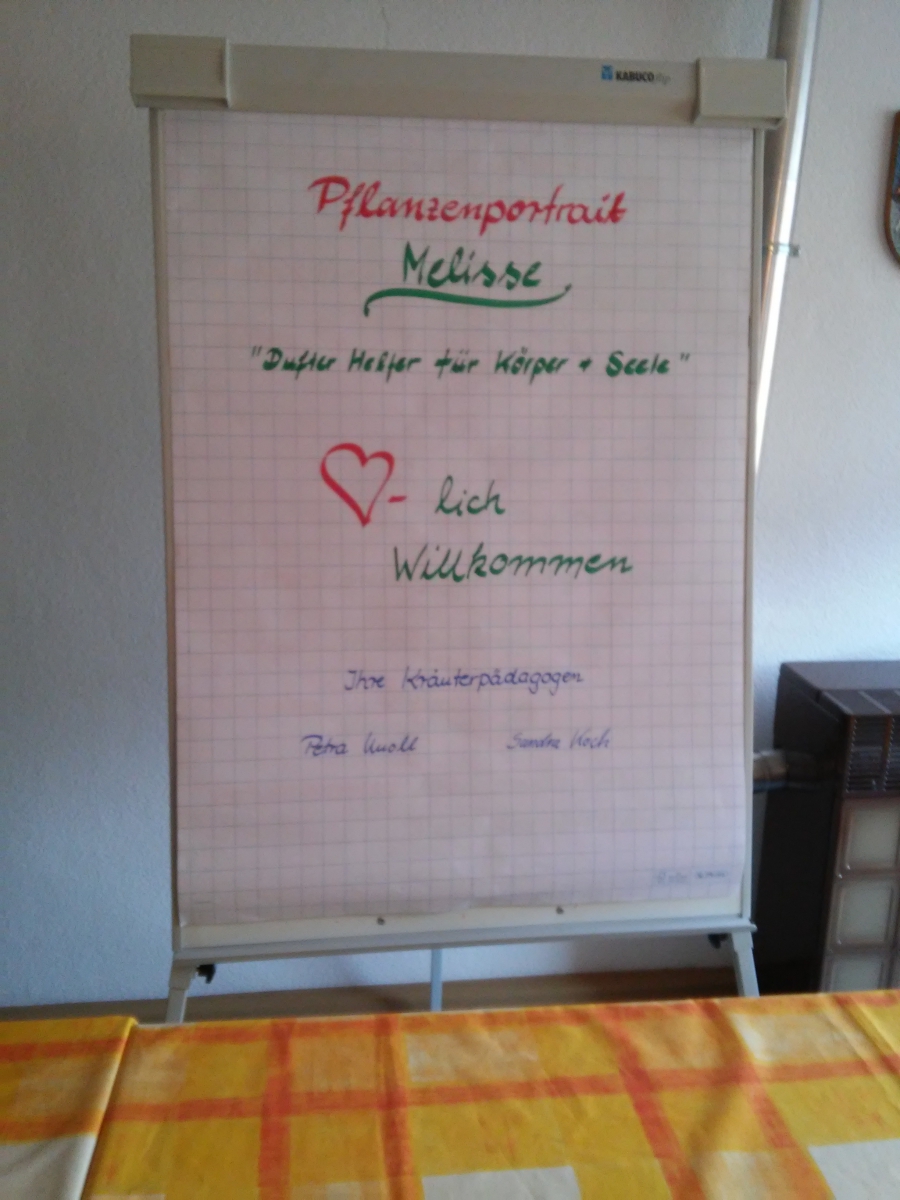 KABUCO
Pflanzenportrait
Melisse
"Dufter Helfer für Körper + Seele"
- lich
Willkommen
Ihre Kräuterpädagogen
Petra Knoll Sandra Koch